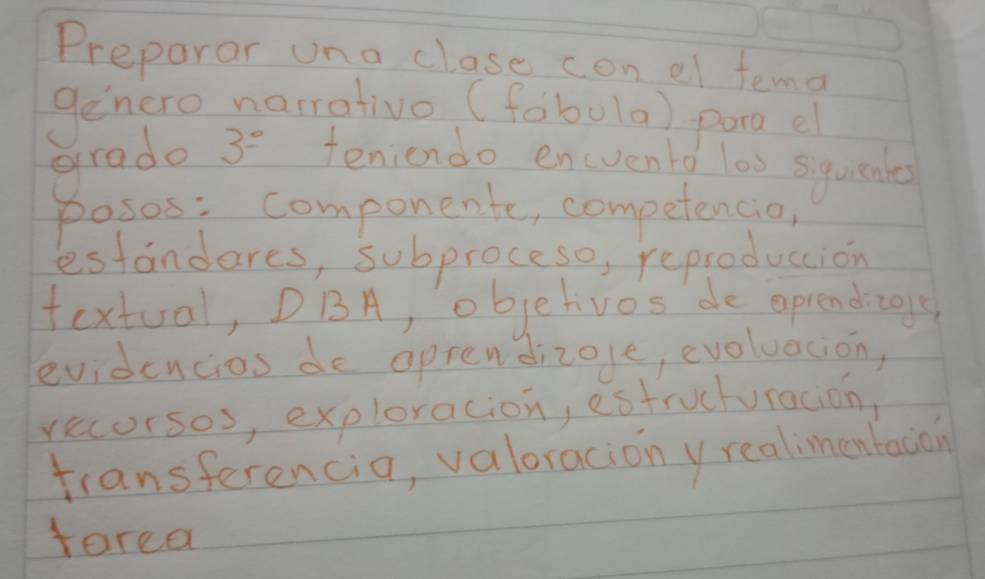 Preparar una clase con el tema
género narrativo (fábula) para el
grado 3º teniendo encuenta los siguientes
pasos: componente, competencia,
estándares, subproceso, reproducción
textual, DBA, objetivos de aprendizaje,
evidencias de aprendizaje, evaluación,
recursos, exploración, estructuración,
transferencia, valoración y realimentación
tarea